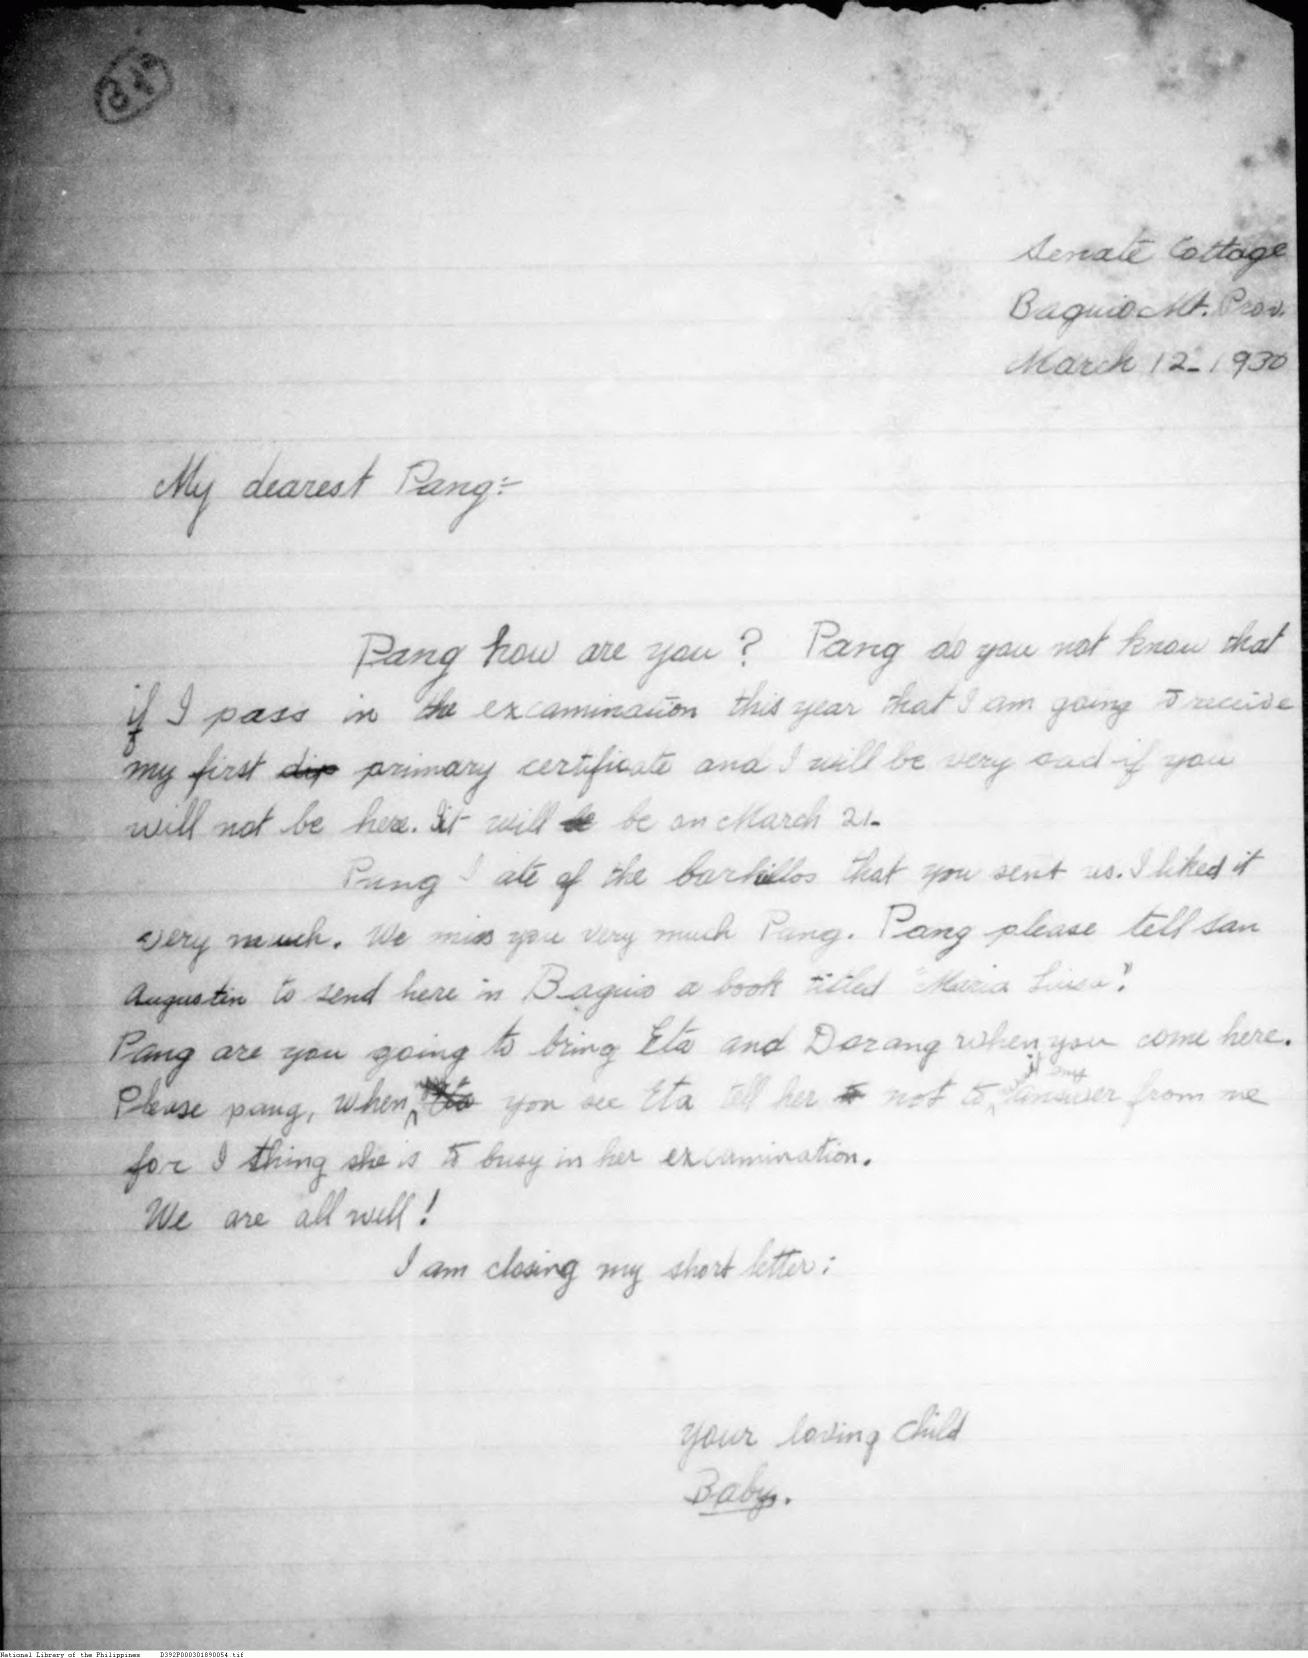 Senate Cottage
Baguio Mt. Prov.
March 12-1930
My dearest Pang:-
Pang how are you? Pang do you not know that
if I pass in the excamination this year that I am going to receive
my first dip primary certificate and I will be very sad if you
will not be here. It will be be on March 21-
Pang I ate of the barkillos that you sent us. I liked it
very much. We miss you very much Pang. Pang please tell San
Augustin to send here in Baguio a book titled "Maria Luisa".
Pang are you going to bring Eta and Dorang when you come here.
Please pang, when Eta you see Eta tell her to not to answer from me
for I thing she is to busy in her excamination.
We are all well!
I am closing my short letter:
Your loving child
Baby.
National Library of the Philippines D392P000301890054.tif